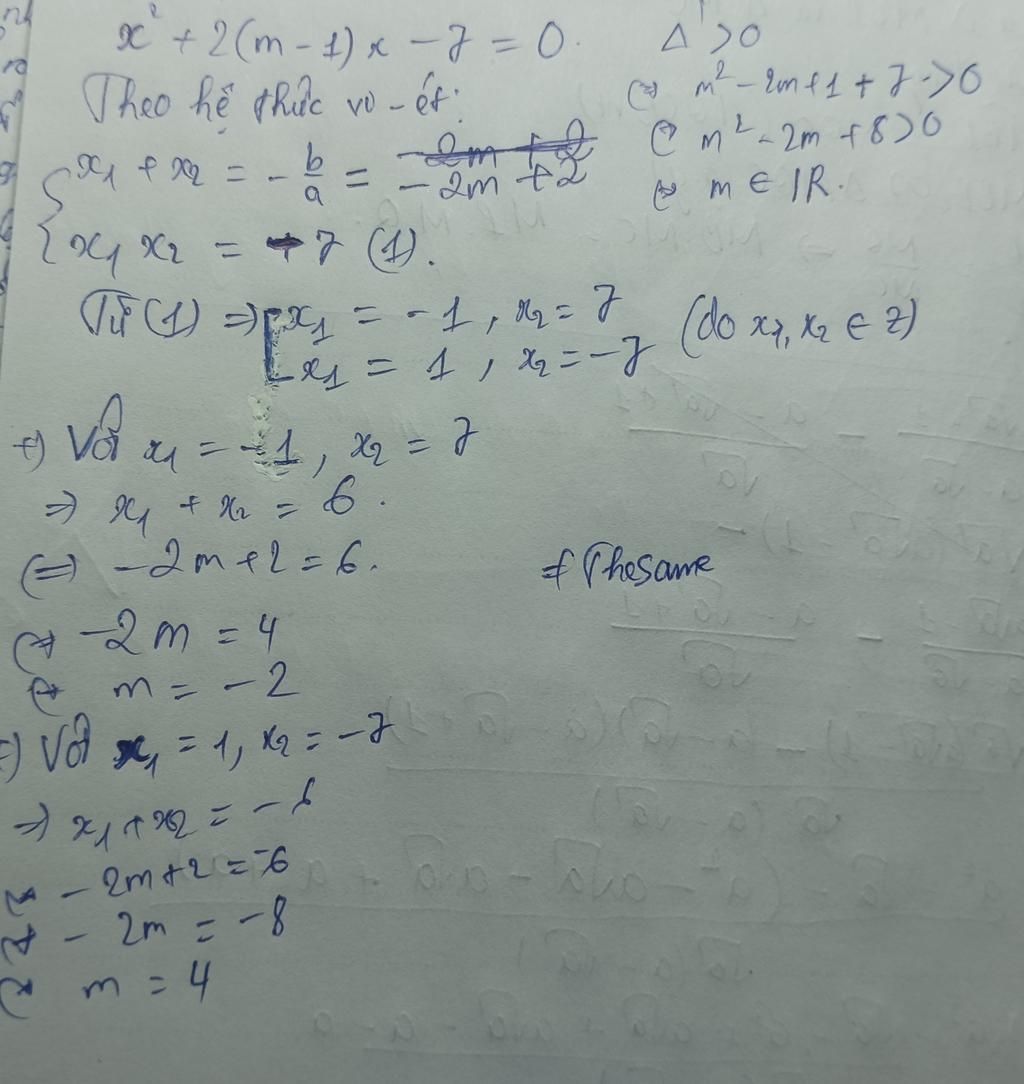 x² + 2(m - 1)x - 7 = 0.
Δ' > 0
Theo hệ thức vi-ét:
⇔ m² - 2m + 1 + 7 > 0
⇔ m² - 2m + 8 > 0
x₁ + x₂ = - b/a = -2m + 2
⇔ m ∈ IR.
x₁ x₂ = -7 (1).
Từ (1) ⇒ [ x₁ = -1, x₂ = 7
x₁ = 1, x₂ = -7
(do x₁, x₂ ∈ Z)
+) Với x₁ = -1, x₂ = 7
⇒ x₁ + x₂ = 6.
⇔ -2m + 2 = 6.
# Thesame
⇔ -2m = 4
⇔ m = -2
+) Với x₁ = 1, x₂ = -7
⇒ x₁ + x₂ = -6
⇔ -2m + 2 = -6
⇔ -2m = -8
⇔ m = 4